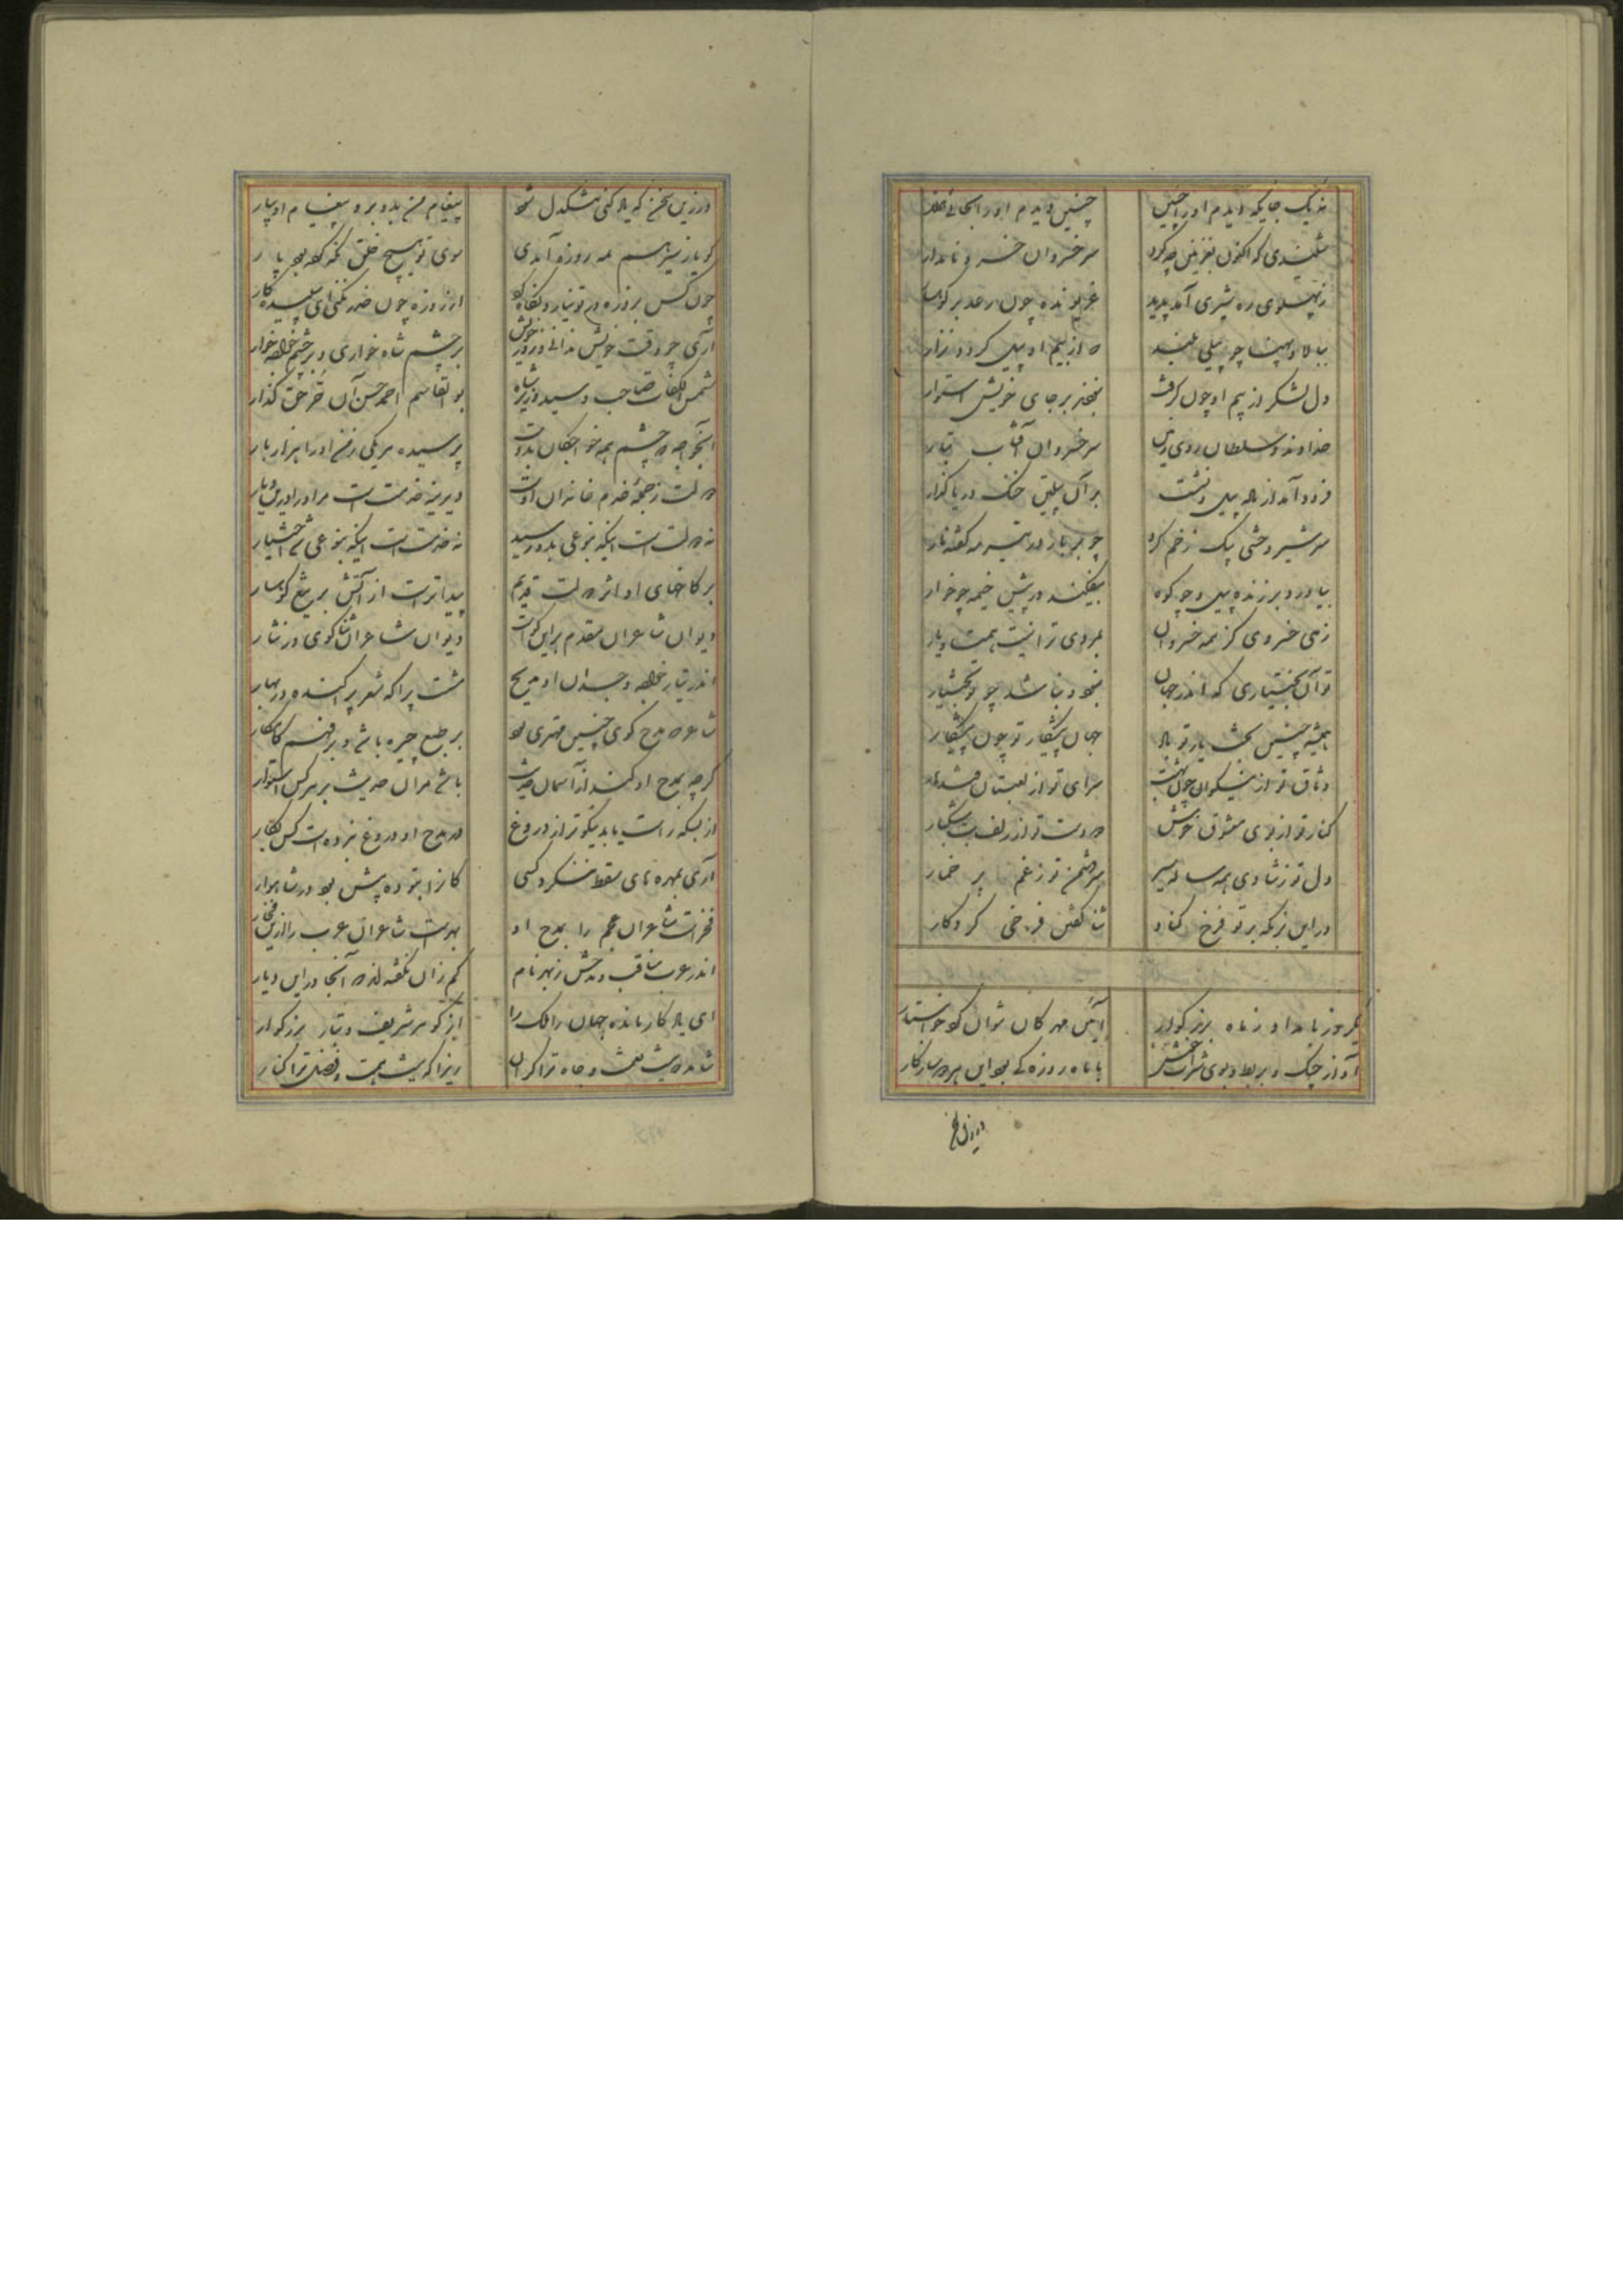 نه یک جایگه دیدم او را چنین چنین دیدم او را بجائی هزار
شنیدی که اکنون بغزنین چه کرد سر خسروان خسرو نامدار
ز پهلوی ره شیری آمد پدید غریونده چون رعد بر کوهسار
ببالا و پهنا چو پیلی بلند که از بیم او پیل کردد نزار
دل لشکر از بیم او چون گرفت نجنبید بر جای خویش استوار
خداوند و سلطان روی زمین سر خسروان آفتاب تبار
فرود آمد از باله پیل و نشست بر آن پیلتن خنک دریا گذار
سر شیر وحشی بیک زخم کرد چو بر بار در تیر مه کفته نار
بیاورد بر زنده پیل و چو کوه بیفکند در پیش خیمه چو خوار
زهی خسروی کز همه خسروان بمردی ترا نیست همت و یار
تو آن بختیاری که اندر جهان نبود و نباشد چو تو بختیار
همیشه چنین بخت یار تو باد جهان پیشکار تو چون پیشکار
وثاق تو از نیکوان چون بهشت سرای تو از لعبتان قندهار
کنار تو از بوی معشوق خوش دو دست تو از زلف بت مشکبار
دل تو ز شادی همه ساله سیر سر دشمن تو ز غم پر خمار
در این بزمگه بر تو فرخ کناد ثنا گفتن فرخی کردگار
یکروز بامداد ز ماه بزرگوار آئین مهرگان نتوان کرد خواستار
آواز چنگ و بربط و بوی شراب خوش با ماه روزه کی بود این هر دو سازگار
ور زین سخن
ور زین سخن که یاد کنی تنگدل شود پیغام من بدو بر و پیغام او بیار
گو یار نیز هم بمه روزه آمدی سوی تو هیچ خلق نگه کرد بود پار
چون کس بروزه در تو نیارد نگاه کرد از روزه چون حذر نکنی ای سپیده کار
آری چو وقت خویش ندانی و روز خویش بر چشم شاه خواری و بر چشم خواجه خوار
شمس الکفات صاحب سید وزیر شاه بوالقاسم احمد حسن آن حر حق گذار
آن خواجه که چشم همه خواجگان بدوست پرسیده هر یکی ز من او را هزار بار
دولت ز جمله خدم خاندان اوست دیرینه خدمت است مر او را در این دیار
نه دولت است اینکه بنوعی بدو رسید نه خدمت است اینکه بنوعی شد اختیار
بر کاخهای او اثر دولت قدیم پیداتر است از آتش بر تیغ کوهسار
دیوان شاعران مقدم بر این گواست دیوان شاعران ثناگوی در نثار
اندر تبار خواجه و جدان او مدیح مثبت پراکه شعر پراکنده در بهار
شاعر که مدح گوی چنین مهتری بود بر طبع چیره باشد و بر فهم کامکار
گرچه بمدح او کند از آسمان حدیث باشد مر آن حدیث بر هر کس استوار
از بسکه راست یابد نیکوتر از دروغ در مدح او دروغ نبرده است کس بکار
آری بمهره های سقط ننگرد کسی کانرا بتوده پیش بود در شاهوار
فخر است شاعران عجم را بمدح او بهر است شاعران عرب را ازین فخار
اندر عرب مناقب و مدحش ز بهر نام کم زان نگفته اند که آنجا در این دیار
ای یادگار مانده جهان را و ملک را از گوهر شریف و تبار بزرگوار
شاید که بیش نعمت و جاه ترا کران زیرا که نیست همت و فضل ترا کنار